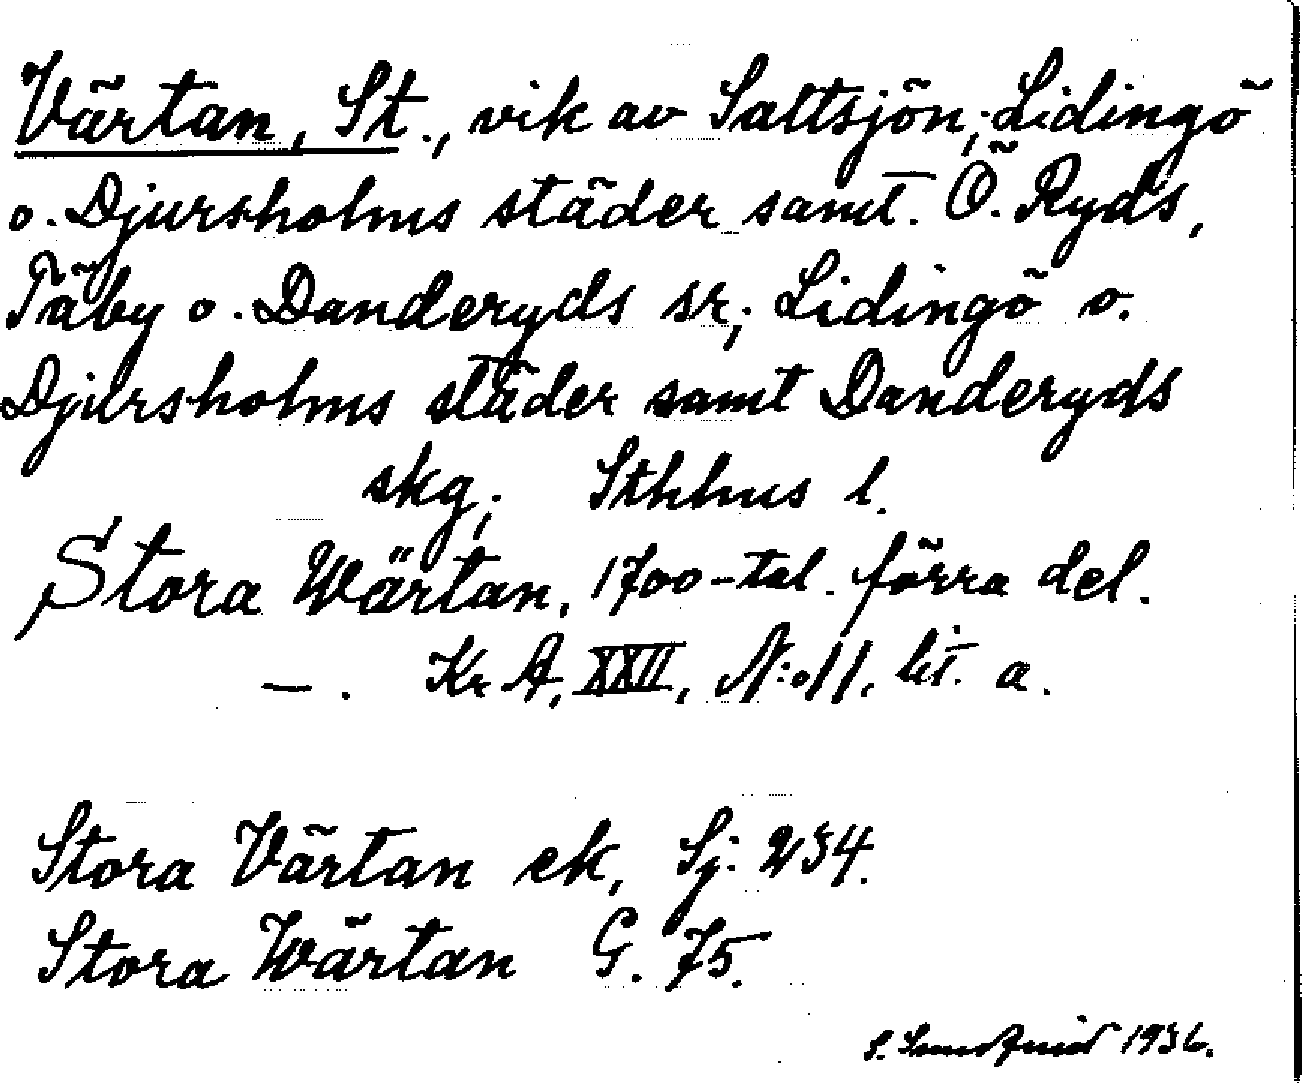 Värtan, St., vik av Saltsjön; Lidingö
o. Djursholms städer samt Ö. Ryds,
Täby o. Danderyds sr; Lidingö o.
Djursholms städer samt Danderyds
skg; Sthlms l.
Stora Wärtan, 1700-tal. förra del.
—. KrA, XXII, N:o 11, lit. a.
Stora Värtan ek, Sj: 234.
Stora Wärtan G. 75.
1936.